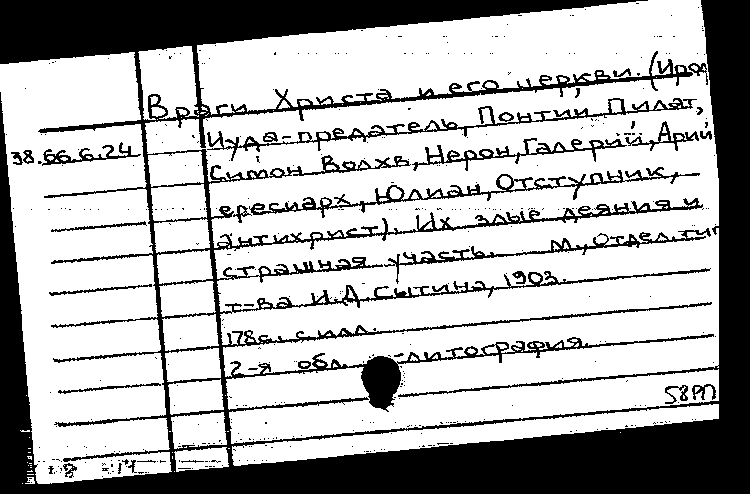 Враги Христа и его церкви. (Ирод
38.66.6.24 Иуда-предатель, Понтий Пилат,
Симон Волхв, Нерон, Галерий, Арий
ересиарх, Юлиан, Отступник, –
антихрист). Их злые деяния и
страшная участь. М., Отдел.тип
т-ва И.Д Сытина, 1903.
178с. с илл.
2-я обл. -литография.